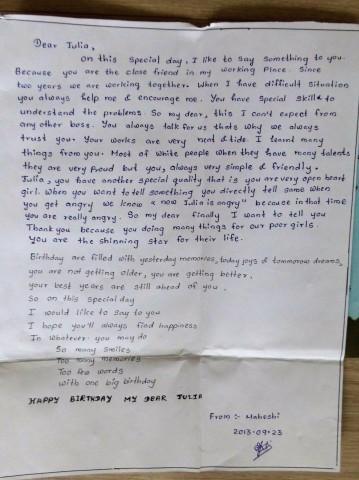 Dear Julia,
On this special day, I like to say something to you.
Because you are the close friend in my working place. Since
two years we are working together. When I have difficult situation
you always help me & encourage me. You have special skills to
understand the problems. So my dear, this I can't expect from
any other boss. You always talk for us thats why we always
trust you. Your works are very neat & tide. I learnt many
things from you. Most of white people when they have many talents
they are very proud but you, always very simple & friendly.
Julia, you have another special quality that is you are very open heart
girl. When you want to tell something you directly tell same when
you get angry we know "now Julia is angry" because in that time
you are really angry. So my dear finally I want to tell you
Thank you because you doing many things for our poor girls.
You are the shinning star for their life.
Birthday are filled with yesterday memories, today joys & tommorow dreams,
you are not getting older, you are getting better.
your best years are still ahead of you.
So on this special day
I would like to say to you
I hope you'll always find happiness
In whatever you may do
So many smiles
Too many memories
Too few words
with one big birthday
HAPPY BIRTHDAY MY DEAR JULIA
From :- Maheshi
2013-09-23